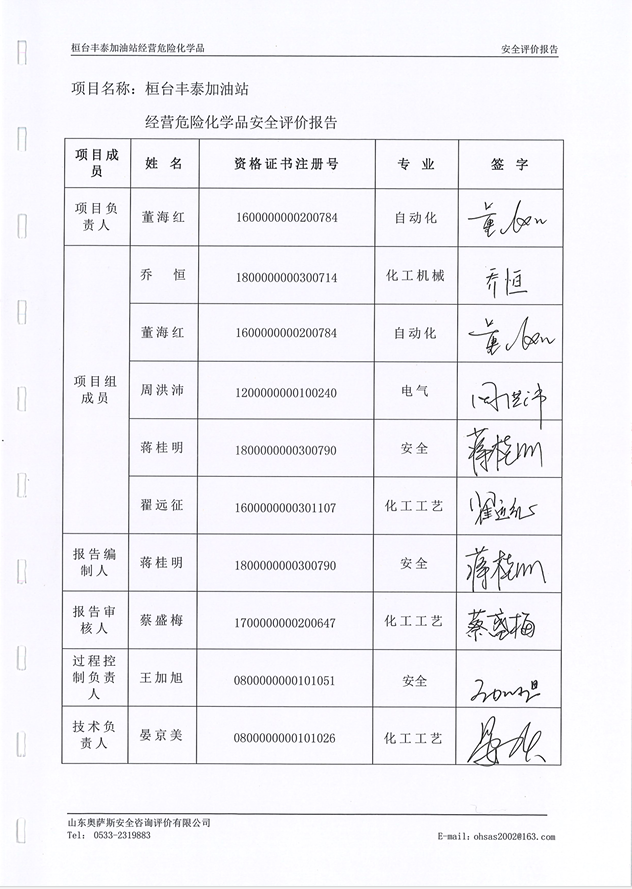 桓台丰泰加油站经营危险化学品 安全评价报告
项目名称：桓台丰泰加油站
经营危险化学品安全评价报告
项目成员 姓 名 资格证书注册号 专 业 签 字
项目负责人 董海红 1600000000200784 自动化 董海红
项目组成员 乔 恒 1800000000300714 化工机械 乔恒
董海红 1600000000200784 自动化 董海红
周洪沛 1200000000100240 电气 周洪沛
蒋桂明 1800000000300790 安全 蒋桂明
翟远征 1600000000301107 化工工艺 翟远征
报告编制人 蒋桂明 1800000000300790 安全 蒋桂明
报告审核人 蔡盛梅 1700000000200647 化工工艺 蔡盛梅
过程控制负责人 王加旭 0800000000101051 安全 王加旭
技术负责人 晏京美 0800000000101026 化工工艺
山东奥萨斯安全咨询评价有限公司
Tel: 0533-2319883 E-mail：ohsas2002@163.com